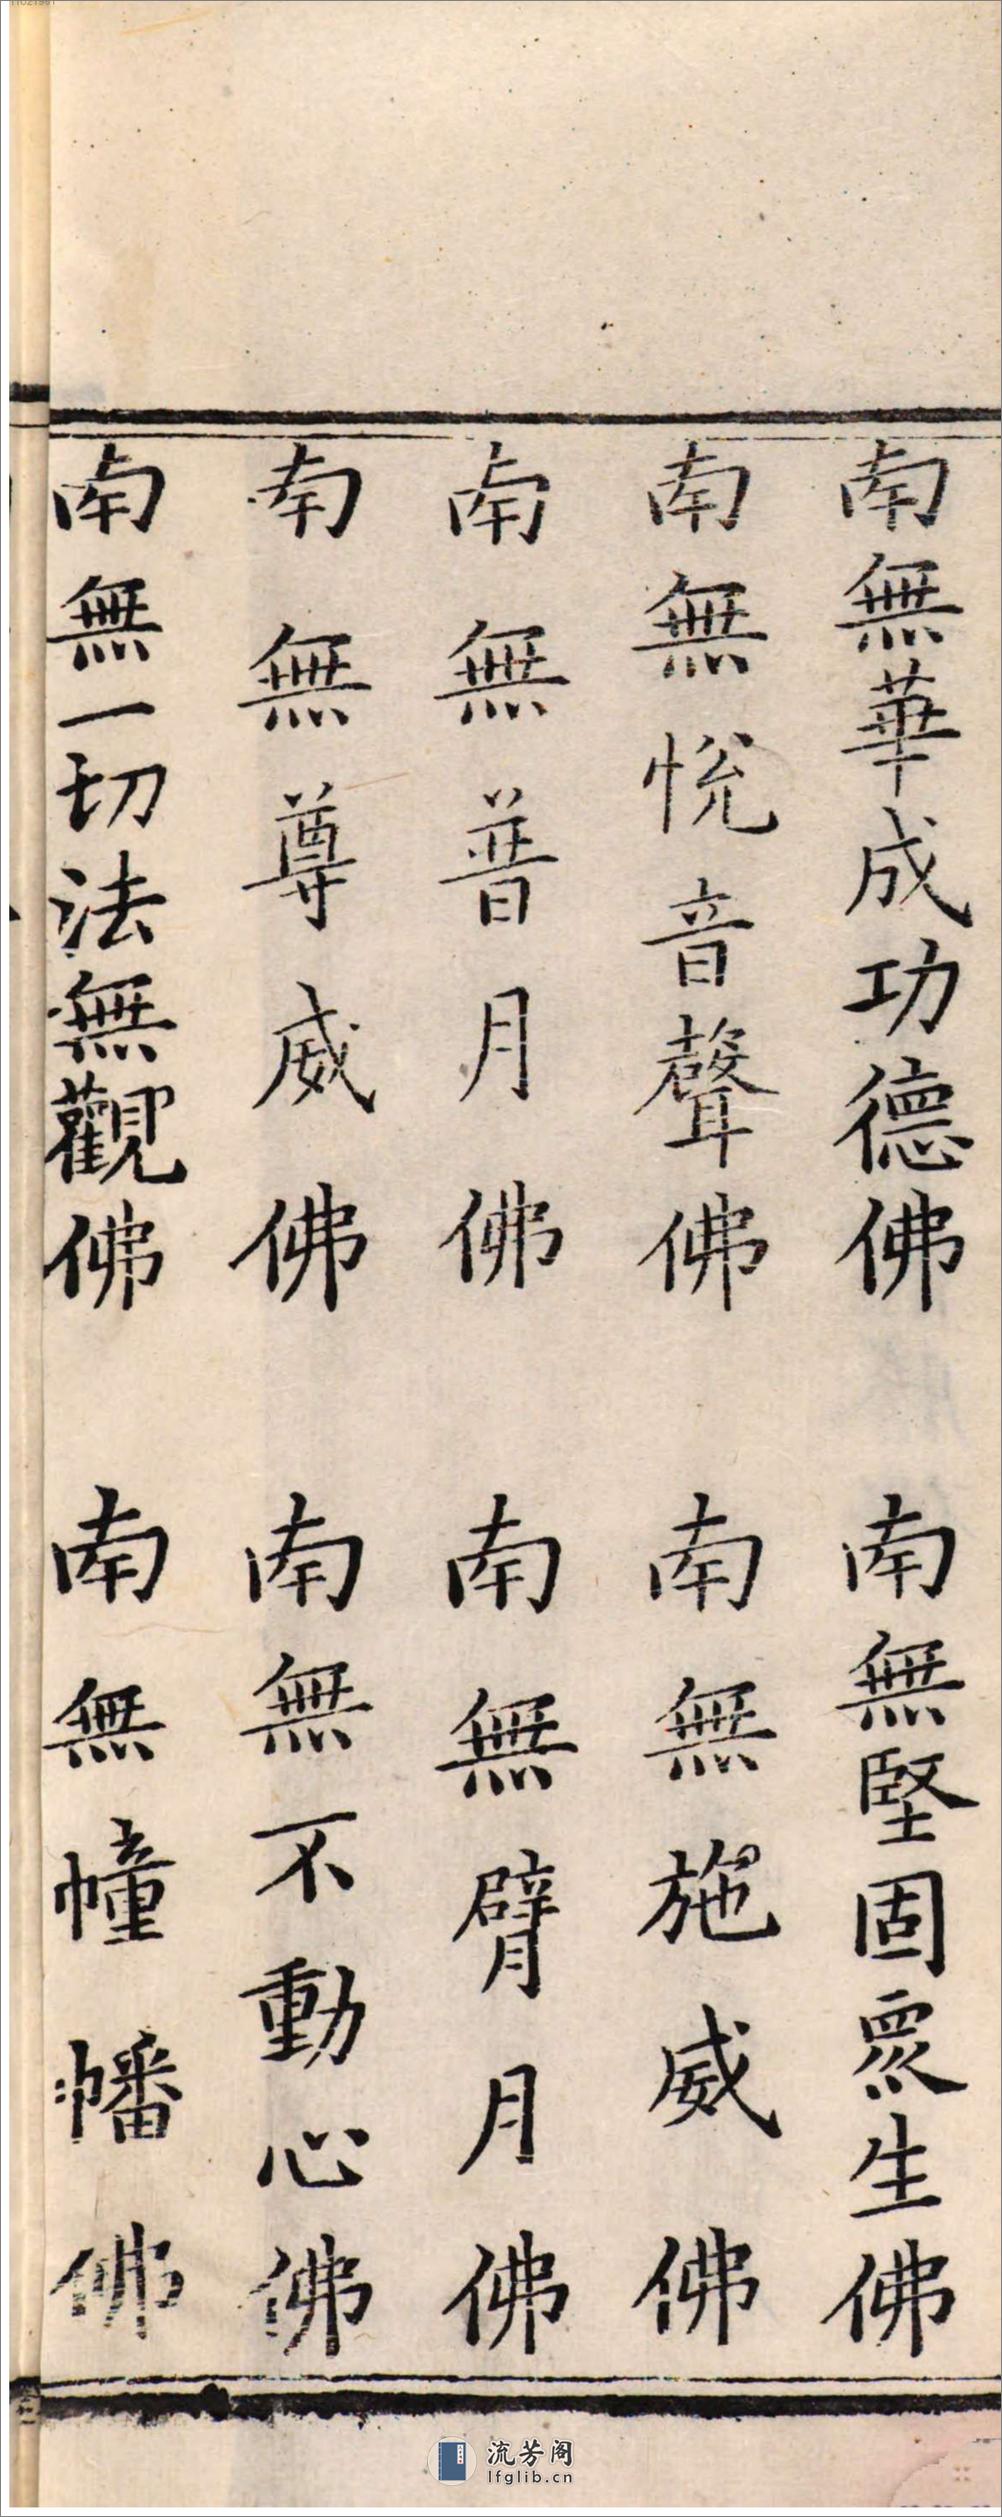 南無華成功德佛　南無堅固眾生佛
南無悅音聲佛　南無施威佛
南無普月佛　南無臂月佛
南無尊威佛　南無不動心佛
南無一切法無觀佛　南無幢幡佛
流芳阁
lfglib.cn